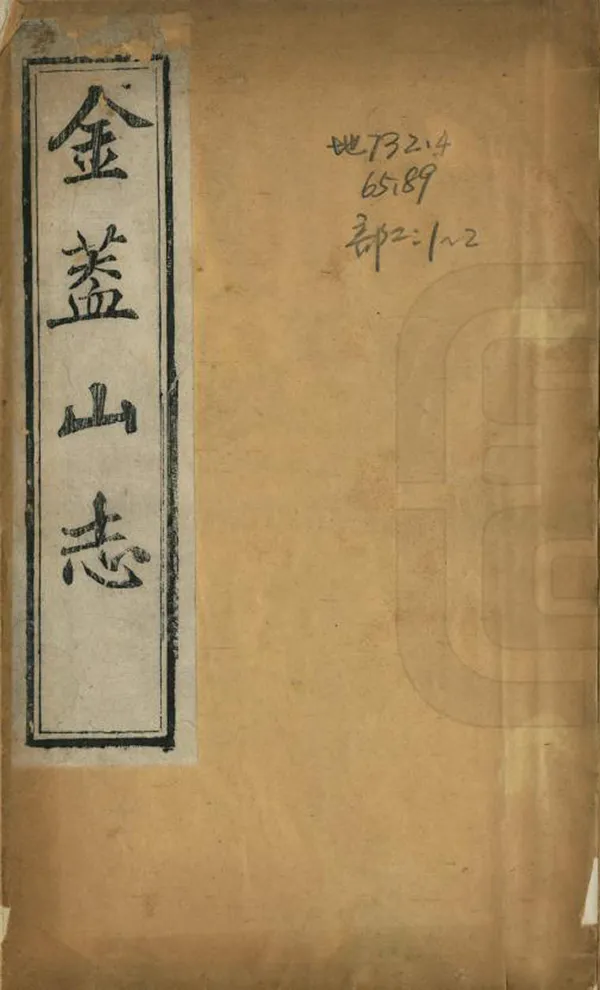 金葢山志
地732.4
65.89
部2:1~2